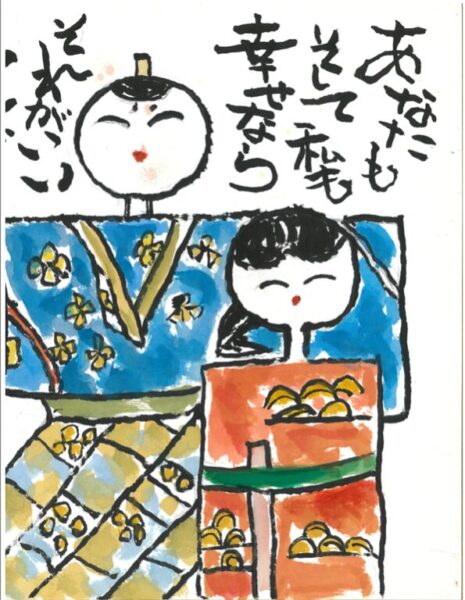 あなたも
そして私も
幸せなら
それがいい